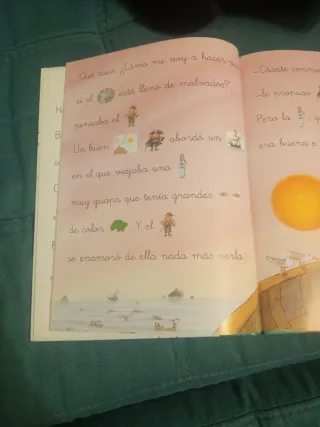 Qué rico. ¿Cómo me voy a hacer
si el está lleno de malvados?",
pensaba el
Un buen abordó un
en el que viajaba una
muy guapa que tenía grandes
de color Y el
se enamoró de ella nada más verla
-Cásate conmi
-le propuso
Pero la
era buena e